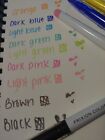 orange
Dark blue
light blue
dark green
light green
Dark pink
Light pink
Brown
Black